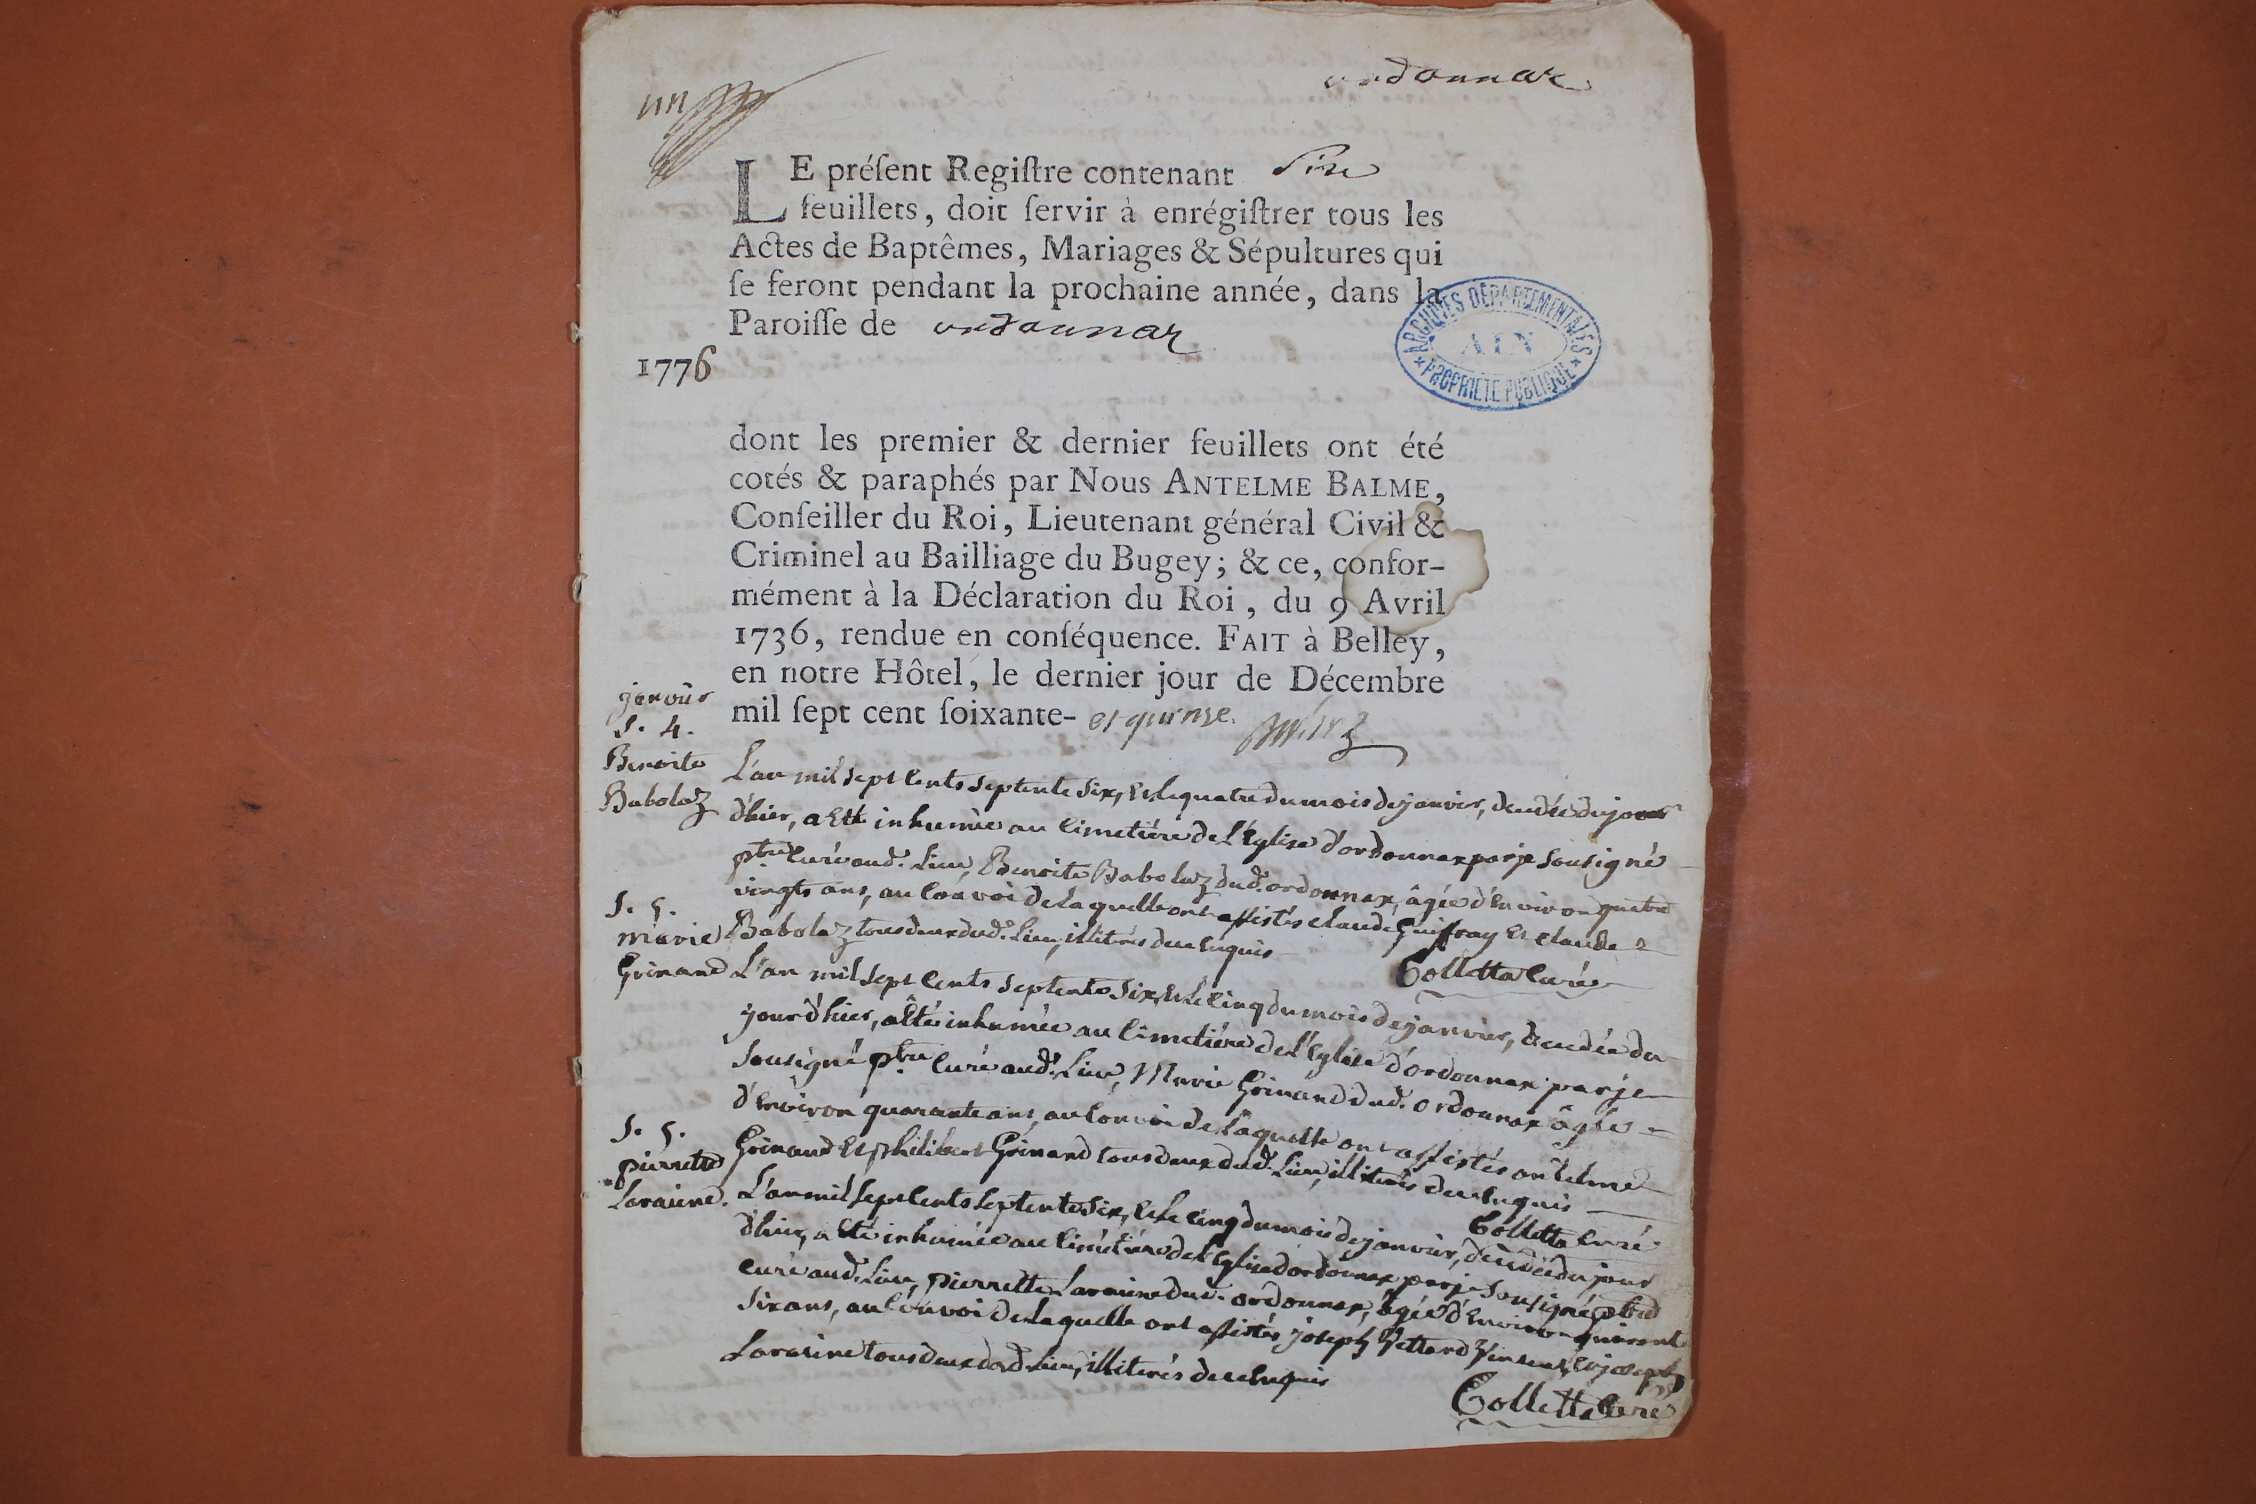 un
ordonnax
LE préſent Regiſtre contenant Six
feuillets, doit ſervir à enrégiſtrer tous les
Actes de Baptêmes, Mariages & Sépultures qui
ſe feront pendant la prochaine année, dans la
Paroiſſe de ordonnax
1776
ARCHIVES DEPARTEMENTALES
AIN
* PROPRIETE PUBLIQUE *
dont les premier & dernier feuillets ont été
cotés & paraphés par Nous ANTELME BALME,
Conſeiller du Roi, Lieutenant général Civil &
Criminel au Bailliage du Bugey; & ce, confor-
mément à la Déclaration du Roi, du 9 Avril
1736, rendue en conſéquence. FAIT à Belley,
en notre Hôtel, le dernier jour de Décembre
mil ſept cent ſoixante- et quinze.
janvier
S. 4.
Benoite
Babolaz
L'an mil sept cents septente six, et le quatre du mois de janvier, decedée du jour
d'hier, a etté inhumée au cimetiére de l'Eglise d'ordonnax par je sousigné
ptre curé aud. Lieu, Benoite Babolaz dud. ordonnax, âgée d'environ quatre
vingts ans, au convoi de laquelle ont assistés claude Guiffray et claude
Babolaz tous deux dud. Lieu, illiterés de ce enquis
Colletta curé
S. 5.
marie
Grinand
L'an mil sept cents septente six, et le cinq du mois de janvier, decedée du
jour d'hier, a êtté inhumée au cimetiére de l'Eglise d'ordonnax par je
sousigné ptre curé aud. Lieu, Marie Grinand dud. ordonnax âgée
d'environ quarante ans, au convoi de laquelle ont assistés antelme
Grinand et philibert Grinand tous deux dud. Lieu, illiterés de ce enquis
Colletta curé
S. 5.
pierrette
Laraine.
L'an mil sept cents septente six, et le cinq du mois de janvier, decedée du jour
d'hier, a etté inhumée au cimetiére de l'Eglise d'ordonnax par je sousigné ptre
curé aud. Lieu, pierrette Laraine dud. ordonnax, âgée d'environ quarante
six ans, au convoi de laquelle ont assistés joseph et joseph
Laraine tous deux dud. Lieu, illiterés de ce enquis
Colletta curé